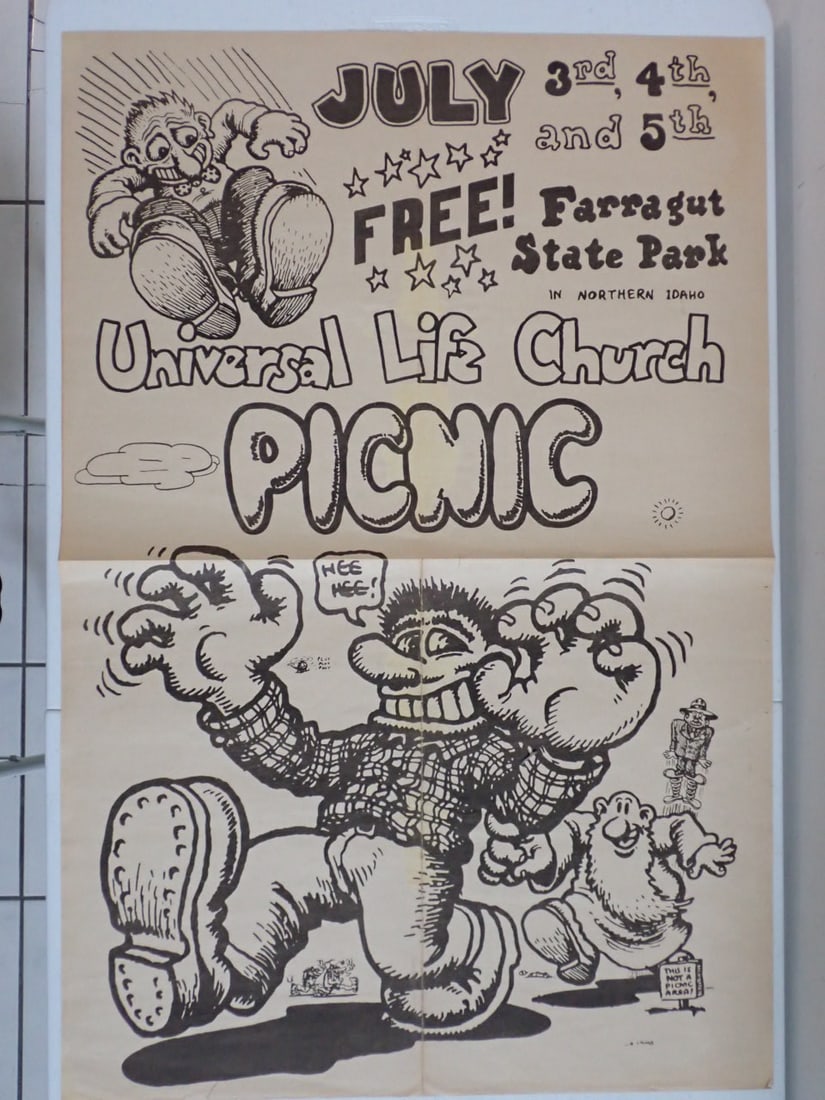 JULY
3rd, 4th,
and 5th
FREE!
Farragut
State Park
IN NORTHERN IDAHO
Universal Life Church
PICNIC
HEE
HEE!
THIS IS
NOT A
PICNIC
AREA!